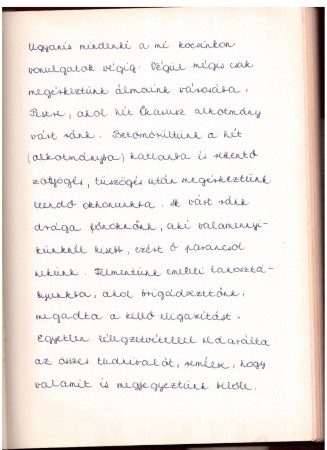 Ugyanis mindenki a mi kocsinkon
vonulgatott végig. Végül mégis csak
megérkeztünk álmaink városába,
Pestre, ahol hét Ikarusz alkotmány
várt ránk. Betömörültünk a hét
(alkotmányba) katlanba és
zötyögés, tüszögés után megérkeztünk
leendő otthonunkba. Itt várt ránk
drága főnöknőnk, aki valamennyi-
ünknél kisebb, ezért ő parancsol
nekünk. Felmentünk emeleti lakosztá-
lyunkba, ahol brigádvezetőnk,
megadta a kellő eligazítást.
Egyetlen lélegzetvétellel eldarálta
az összes tudnivalót, remélem, hogy
valamit is megjegyeztünk belőle.